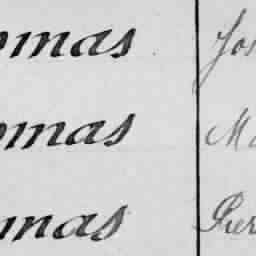 omas Jos
omas Ma
mas Pier